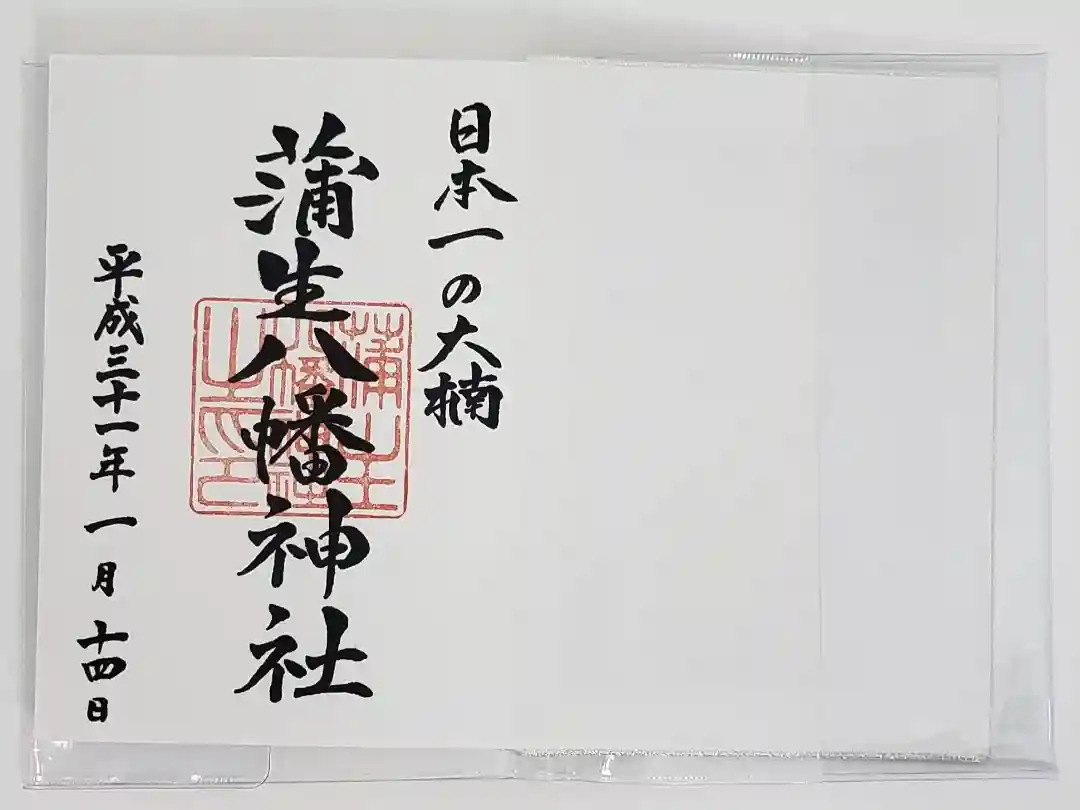 日本一の大楠
蒲生八幡神社
蒲生八幡神社之印
平成三十一年一月十四日